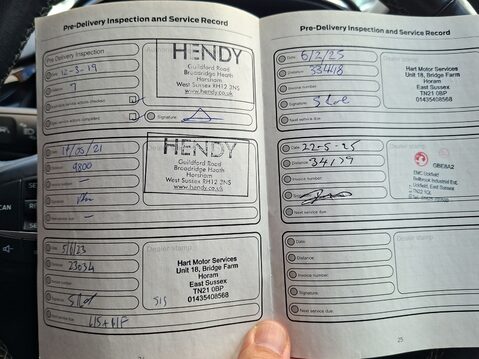 Pre-Delivery Inspection and Service Record
Pre Delivery Inspection
Date: 12-3-19
Distance: 7
HENDY
Guildford Road
Broadridge Heath
Horsham
West Sussex RH12 3NS
www.hendy.co.uk
Signature:
Date: 17/05/21
9800
HENDY
Guildford Road
Broadridge Heath
Horsham
West Sussex RH12 3NS
www.hendy.co.uk
5/6/23
23034
Dealer stamp:
Hart Motor Services
Unit 18, Bridge Farm
Horam
East Sussex
TN21 0BP
01435408568
Next service due:
Pre-Delivery Inspection and Service Record
Date: 6/2/25
Distance: 33418
Invoice number:
Signature:
Next service due:
Hart Motor Services
Unit 18, Bridge Farm
Horam
East Sussex
TN21 0BP
01435408568
Date: 22-5-25
Distance: 34179
Invoice number:
Signature:
Next service due:
Dealer stamp:
GBE8A2
EMC Uckfield
Bellbrook Industrial Est.
Uckfield, East Sussex
TN22 1QL
Date:
Distance:
Invoice number:
Signature:
Next service due:
Dealer stamp:
25